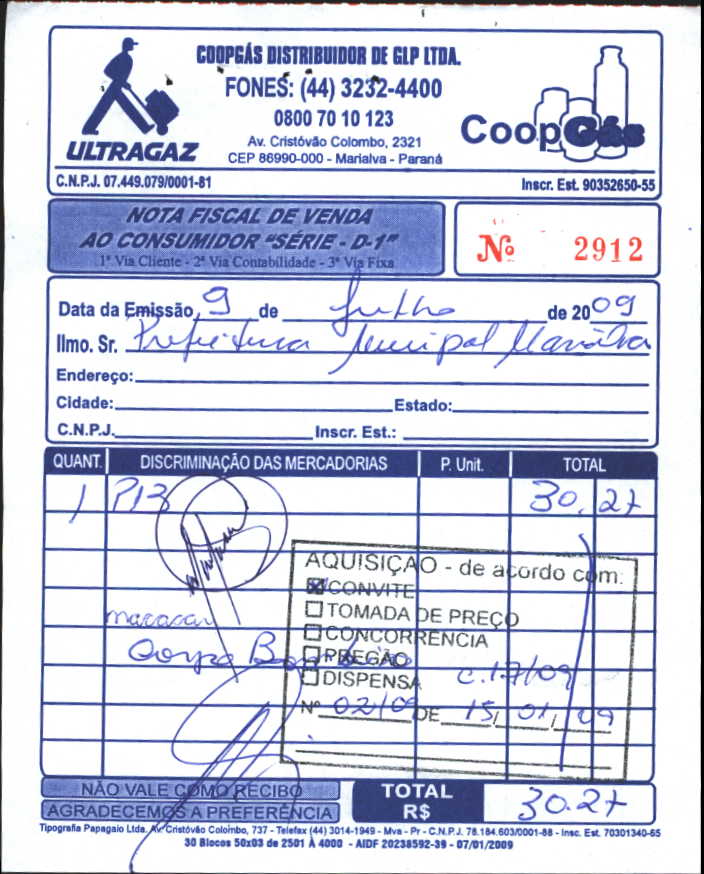 COOPGÁS DISTRIBUIDOR DE GLP LTDA.
FONES: (44) 3232-4400
0800 70 10 123
Av. Cristóvão Colombo, 2321
CEP 86990-000 - Marialva - Paraná
ULTRAGAZ
CoopGás
C.N.P.J. 07.449.079/0001-81
Inscr. Est. 90352650-55
NOTA FISCAL DE VENDA
AO CONSUMIDOR "SÉRIE - D-1"
1ª Via Cliente - 2ª Via Contabilidade - 3ª Via Fixa
Nº 2912
Data da Emissão 9 de Julho de 2009
Ilmo. Sr. Prefeitura Municipal Marialva
Endereço:
Cidade: Estado:
C.N.P.J. Inscr. Est.:
QUANT. DISCRIMINAÇÃO DAS MERCADORIAS P. Unit. TOTAL
1 P13 30,27
AQUISIÇÃO - de acordo com:
CONVITE
TOMADA DE PREÇO
CONCORRENCIA
PREGÃO
DISPENSA C.17/09
Nº 02/09 DE 15/01/09
NÃO VALE COMO RECIBO
AGRADECEMOS A PREFERÊNCIA
TOTAL R$ 30.27
Tipografia Papagaio Ltda. Av. Cristóvão Colombo, 737 - Telefax (44) 3014-1949 - Mva - Pr - C.N.P.J. 78.184.603/0001-88 - Insc. Est. 70301340-65
30 Blocos 50x03 de 2501 À 4000 - AIDF 20238592-39 - 07/01/2009